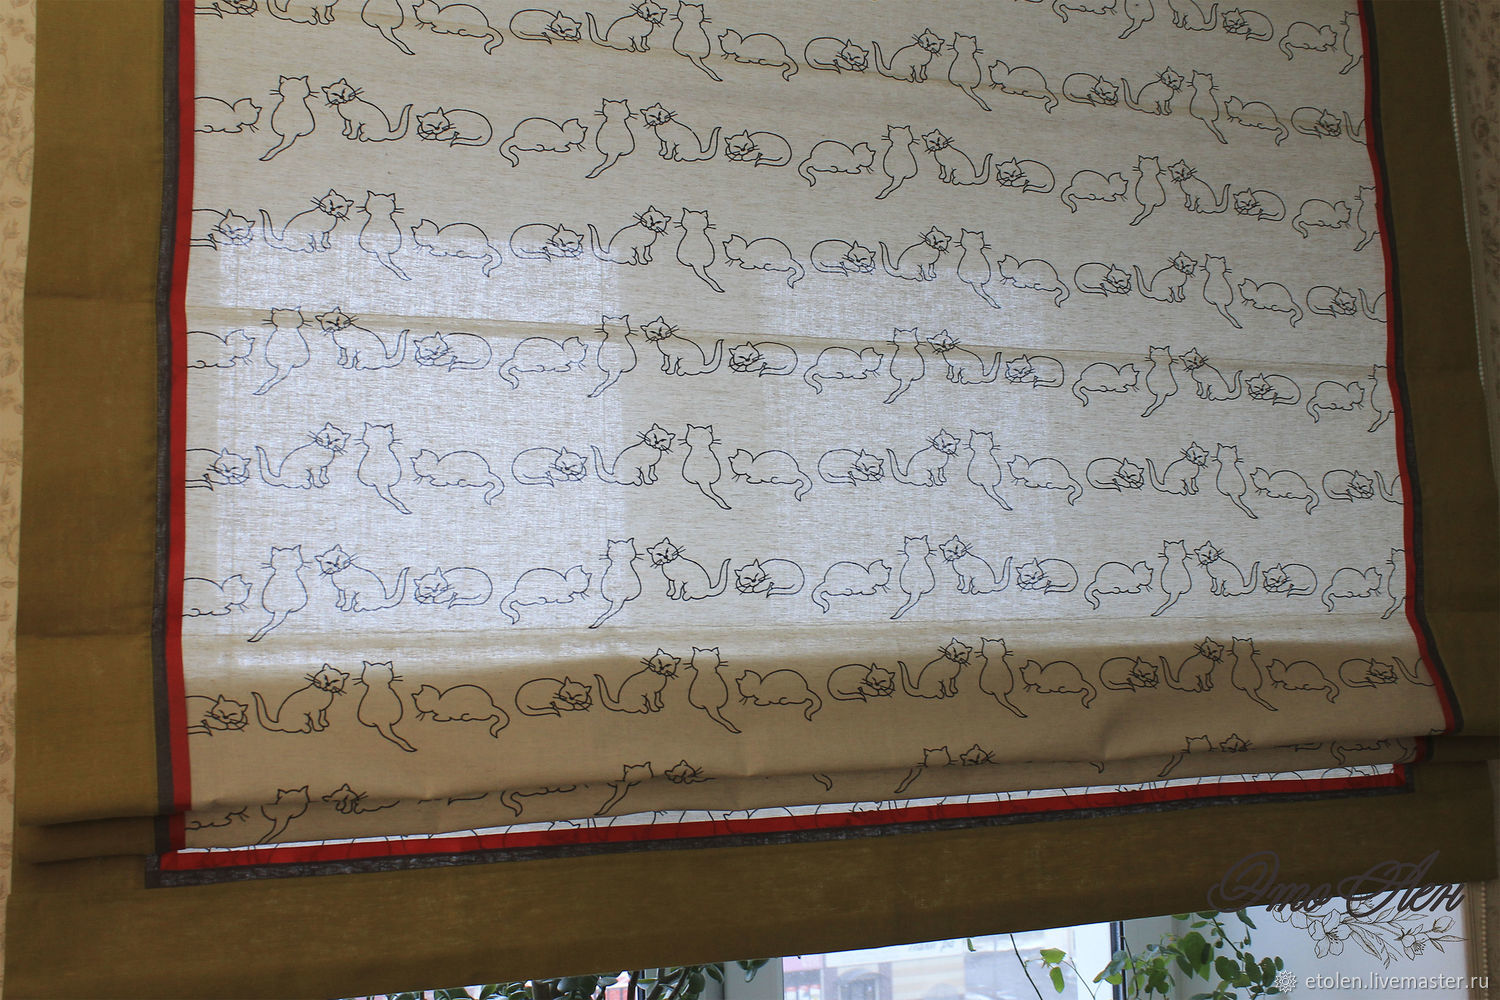 Это Лен
etolen.livemaster.ru